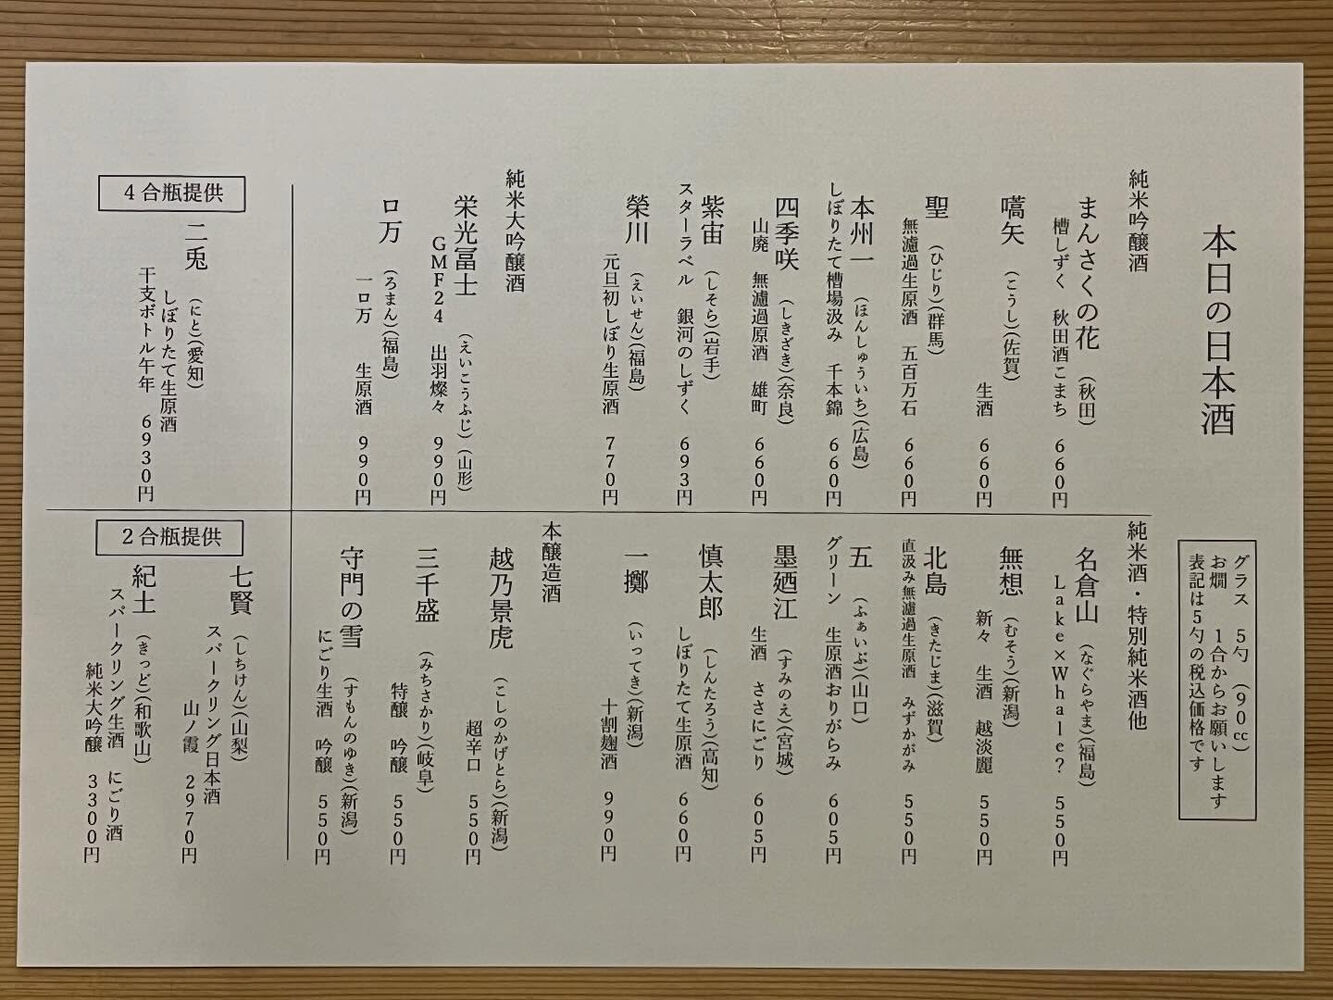 本日の日本酒
グラス 5勺(90cc)
お燗 1合からお願いします
表記は5勺の税込価格です
純米吟醸酒
まんさくの花 (秋田)
槽しずく 秋田酒こまち 660円
嚆矢 (こうし)(佐賀)
生酒 660円
聖 (ひじり)(群馬)
無濾過生原酒 五百万石 660円
本州一 (ほんしゅういち)(広島)
しぼりたて槽場汲み 千本錦 660円
四季咲 (しきざき)(奈良)
山廃 無濾過原酒 雄町 660円
紫宙 (しそら)(岩手)
スターラベル 銀河のしずく 693円
榮川 (えいせん)(福島)
元旦初しぼり生原酒 770円
純米大吟醸酒
栄光冨士 (えいこうふじ)(山形)
GMF24 出羽燦々 990円
ロ万 (ろまん)(福島)
一ロ万 生原酒 990円
純米酒・特別純米酒他
名倉山 (なぐらやま)(福島)
Lake×Whale? 550円
無想 (むそう)(新潟)
新々 生酒 越淡麗 550円
北島 (きたじま)(滋賀)
直汲み無濾過生原酒 みずかがみ 550円
五 (ふぁいぶ)(山口)
グリーン 生原酒おりがらみ 605円
墨廼江 (すみのえ)(宮城)
生酒 ささにごり 605円
慎太郎 (しんたろう)(高知)
しぼりたて生原酒 660円
一擲 (いってき)(新潟)
十割麹酒 990円
本醸造酒
越乃景虎 (こしのかげとら)(新潟)
超辛口 550円
三千盛 (みちさかり)(岐阜)
特醸 吟醸 550円
守門の雪 (すもんのゆき)(新潟)
にごり生酒 吟醸 550円
4合瓶提供
二兎 (にと)(愛知)
しぼりたて生原酒
干支ボトル午年 6930円
2合瓶提供
七賢 (しちけん)(山梨)
スパークリング日本酒
山ノ霞 2970円
紀土 (きっど)(和歌山)
スパークリング生酒 にごり酒
純米大吟醸 3300円